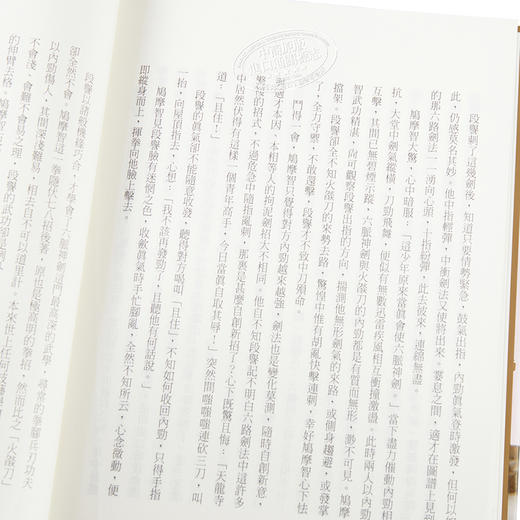 段譽刺了這幾劍後，知道只要情勢緊急，鼓氣出指，內勁真氣登時激發，但何以如
此，仍感莫名其妙。他中指輕彈，中衝劍法又使將出來。霎息之間，適才在圖譜上見到
的那六路劍法一一湧向心頭，十指紛彈，此去彼來，連綿無盡。
鳩摩智大驚，心中暗服：「這少年原來當真會使六脈神劍。」當下盡力催動內勁相
抗，大堂中劍氣縱橫，刀勁飛舞，便似有無數迅雷疾風相互衝撞激盪。此時兩人以內勁
互擊，其間已無碧煙示蹤，六脈神劍與火燄刀的內勁都是有質而無形，渺不可見。鳩摩
智武功精湛，尚可觀察段譽出指的方向，揣測他無形劍氣的來路，或側身趨避，或發掌
擋架。段譽卻全不知火燄刀的來勢去路，驚惶中惟有胡亂快擊連刺，幸好鳩摩智心下怯
了，全力守禦，不敢還擊，段譽又不致中刀殞命。
鬥得一會，鳩摩智只覺得對方內勁越來越強，劍法也是變化莫測，隨時自創新意，
與適才本因、本相等人的拘泥劍招大不相同。他自不知段譽記不明白六路劍法中這許多
繁複的招式，不過危急中隨指亂刺，那裏是甚麼自創新招了？心下既驚且悔：「天龍寺
中居然伏得有這樣一個青年高手，今日當真自取其辱！」突然間嗤嗤嗤連砍三刀，叫
道：「且住！」
段譽的真氣卻不能隨意收發，聽得對方喝叫「且住」，不知如何收回內勁，只得手指
一抬，向屋頂指去，心想：「我不該再發勁了，且聽他有何話說。」
鳩摩智見段譽臉有迷惘之色，收斂真氣時手忙腳亂，全然不知所云，心念微動，便
即縱身而上，揮拳向他臉上擊去。
段譽以諸般機緣巧合，才學會了六脈神劍這門最高深的武學，尋常的拳腳兵刃功夫
卻全然不會。鳩摩智這一拳隱伏七八招後著，原也是極高明的拳招，然而比之「火燄刀」
以內勁傷人，其間深淺難易，相去自不可以道里計。本來世上任何技
不會淺、會難不會易之理，段譽的武功卻是
的伸臂去格。鳩摩智